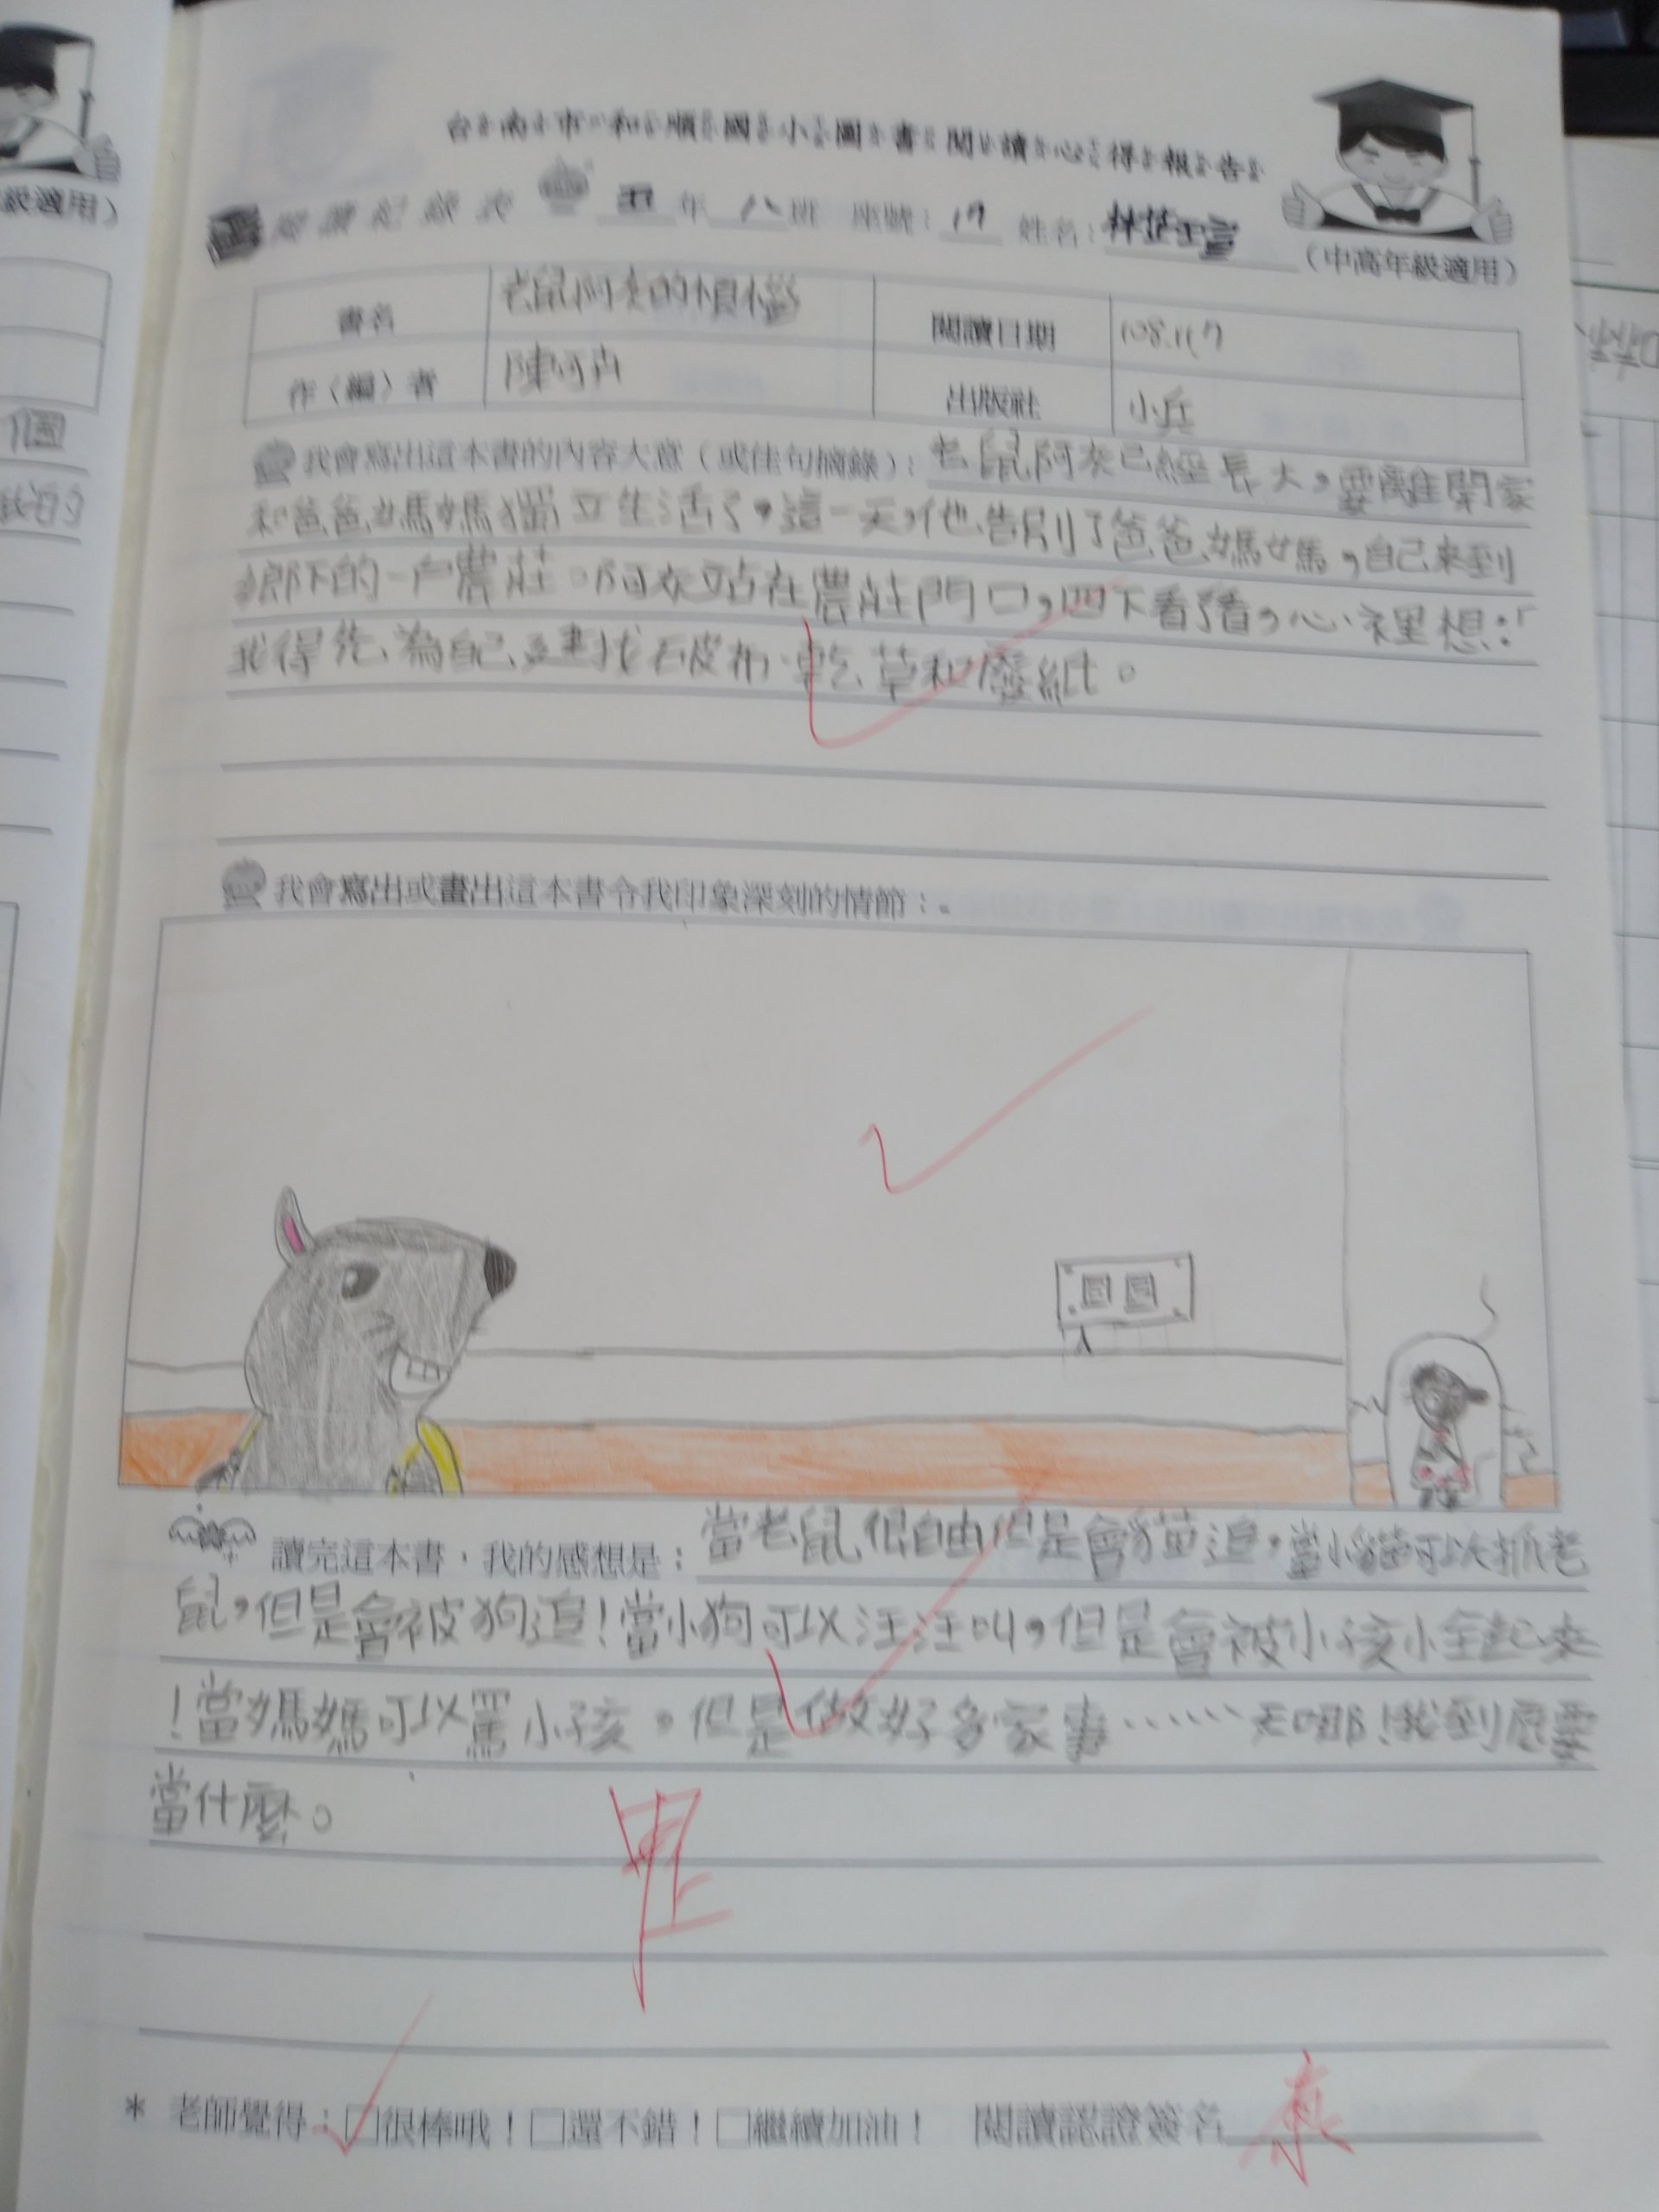 台南市和順國小圖書閱讀心得報告
閱讀紀錄表 五年八班 座號：17 姓名：林
（中高年級適用）
書名 老鼠阿灰的煩惱 閱讀日期 108.11.7
作（編）者 陳 出版社 小兵
我會寫出這本書的內容大意（或佳句摘錄）：老鼠阿灰已經長大，要離開家
和爸爸媽媽獨立生活了，這一天，他告別了爸爸媽媽，自己來到
鄉下的一戶農莊。阿灰站在農莊門口，四下看了看，心裡想：「
我得先為自己找破布、乾草和廢紙。
我會寫出或畫出這本書令我印象深刻的情節：。
讀完這本書，我的感想是：當老鼠很自由但是會貓追，當小貓可以抓老
鼠，但是會被狗追！當小狗可以汪汪叫，但是會被小孩小全起來
！當媽媽可以罵小孩，但是做好多家事……天哪！我到底要
當什麼。
* 老師覺得：□很棒哦！□還不錯！□繼續加油！ 閱讀認證簽名
級適用）
個
我的